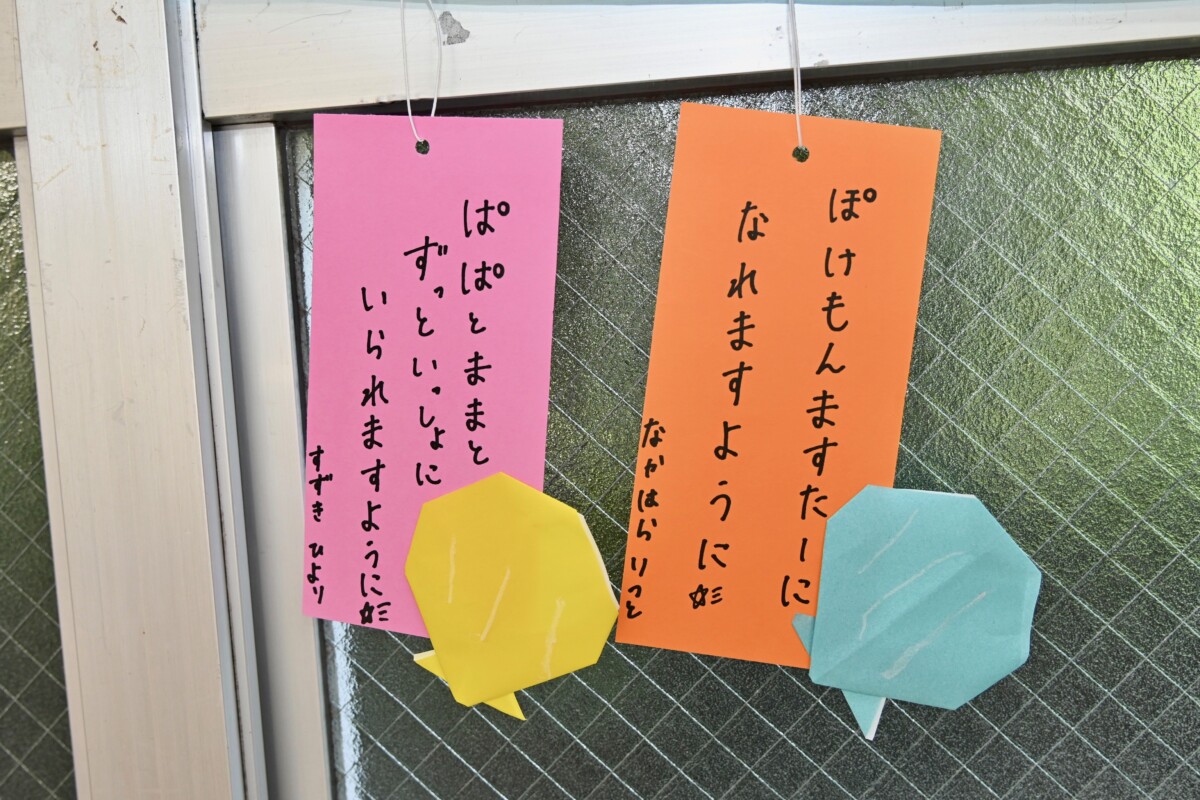 ぱぱとままと
ずっといっしょに
いられますように☆彡
すずき ひより
ぽけもんますたーに
なれますように☆彡
なかはら りつと